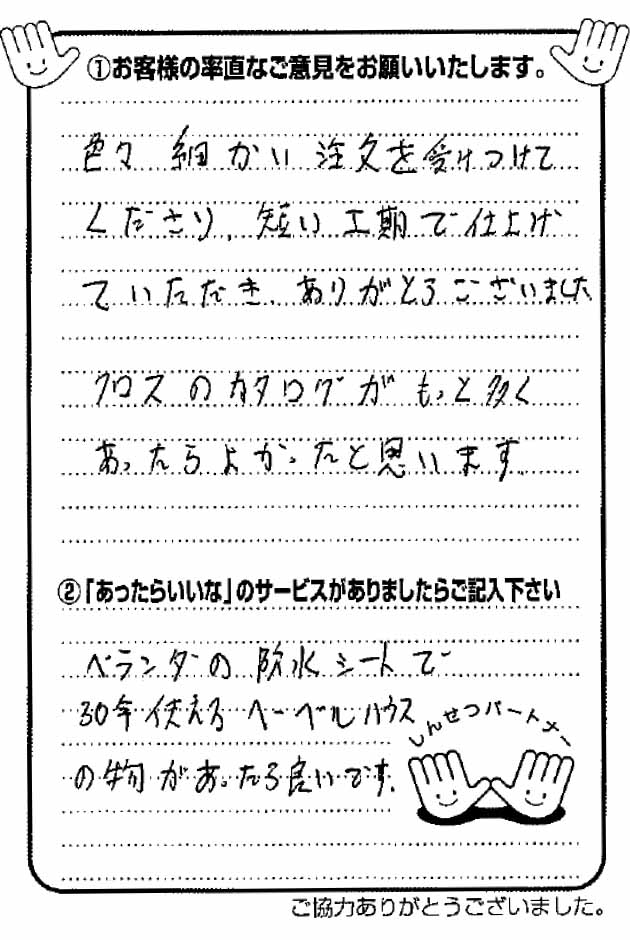 ①お客様の率直なご意見をお願いいたします。
色々 細かい 注文を受けつけて
くださり、短い工期で仕上げ
ていただき、ありがとうございました
クロスのカタログがもっと多く
あったらよかったと思います。
②「あったらいいな」のサービスがありましたらご記入下さい
ベランダの防水シートで
30年使えるヘーベルハウス
の物があったら良いです。
しんせつパートナー
ご協力ありがとうございました。